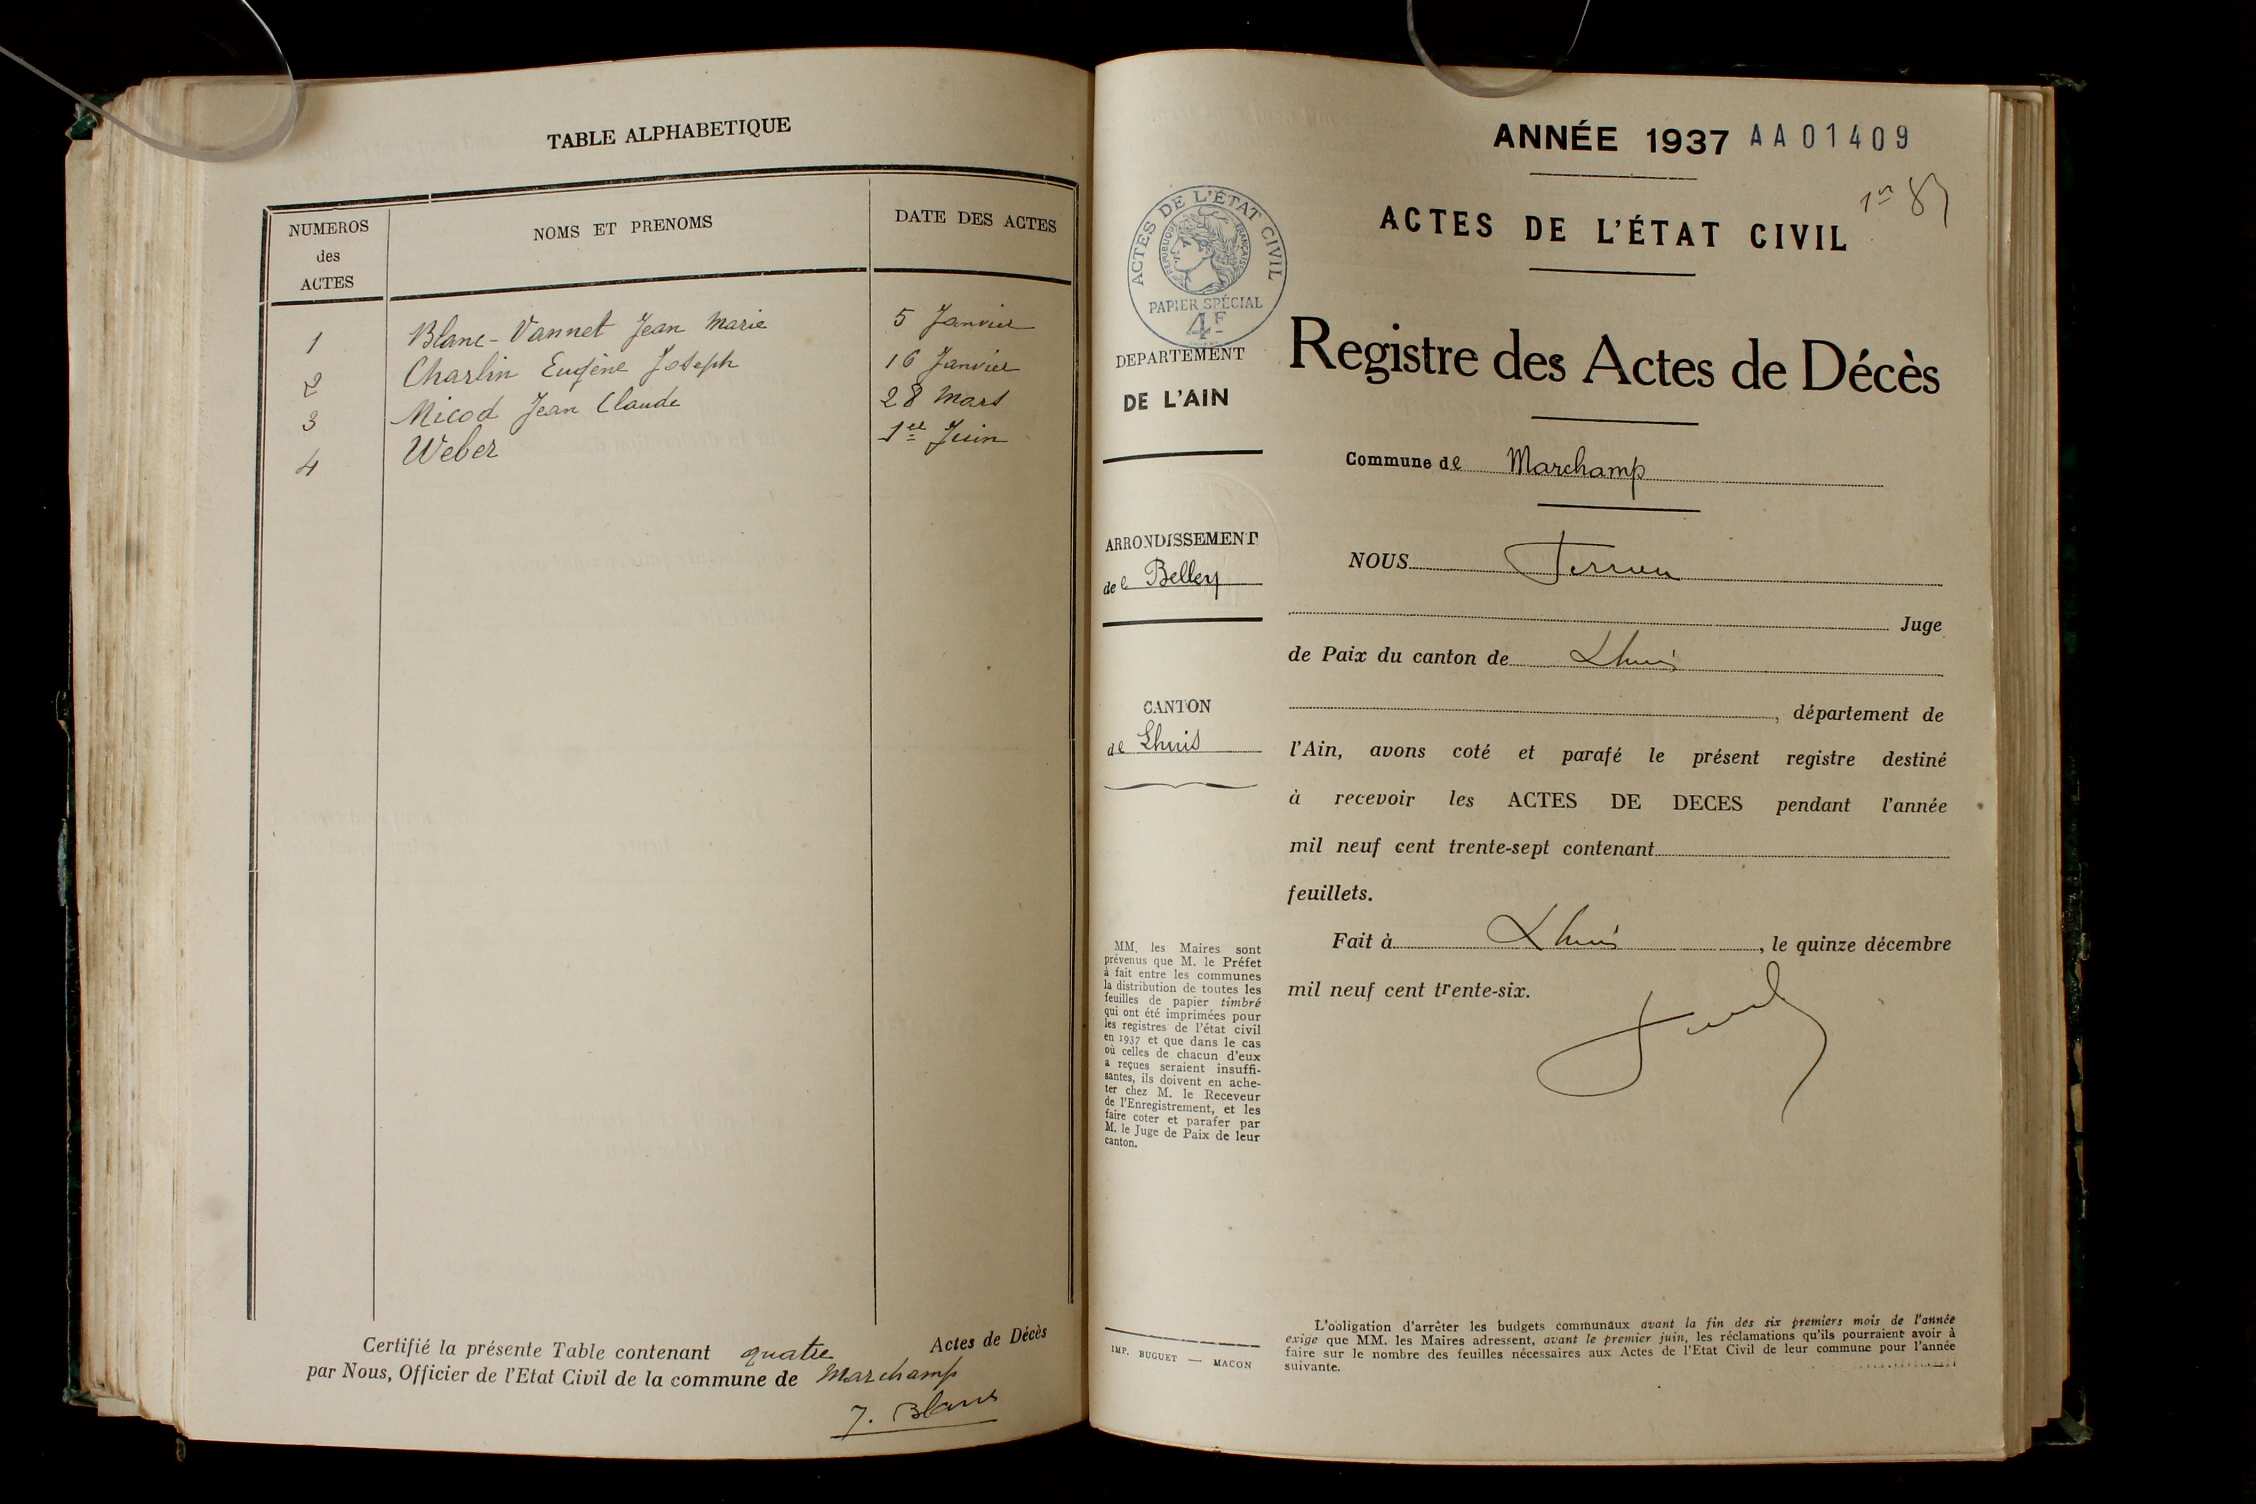 TABLE ALPHABETIQUE
NUMEROS
des
ACTES
NOMS ET PRENOMS
DATE DES ACTES
1 Blanc-Vannet Jean Marie 5 Janvier
2 Charlin Eugène Joseph 16 Janvier
3 Micod Jean Claude 28 Mars
4 Weber 1er Juin
Certifié la présente Table contenant quatre Actes de Décès
par Nous, Officier de l'Etat Civil de la commune de Marchamp
J. Blanc
ANNÉE 1937 AA01409
ACTES DE L'ÉTAT CIVIL
ACTES DE L'ÉTAT CIVIL
RÉPUBLIQUE FRANÇAISE
PAPIER SPÉCIAL
4F
Registre des Actes de Décès
DEPARTEMENT
DE L'AIN
Commune de Marchamp
ARRONDISSEMENT
de Belley
NOUS
Juge
de Paix du canton de Lhuis
CANTON
de Lhuis
, département de
l'Ain, avons coté et parafé le présent registre destiné
à recevoir les ACTES DE DECES pendant l'année
mil neuf cent trente-sept contenant
feuillets.
Fait à Lhuis, le quinze décembre
mil neuf cent trente-six.
MM. les Maires sont
prévenus que M. le Préfet
à fait entre les communes
la distribution de toutes les
feuilles de papier timbré
qui ont été imprimées pour
les registres de l'état civil
en 1937 et que dans le cas
où celles de chacun d'eux
a reçues seraient insuffi-
santes, ils doivent en ache-
ter chez M. le Receveur
de l'Enregistrement, et les
faire coter et parafer par
M. le Juge de Paix de leur
canton.
IMP. BUGUET — MACON
L'obligation d'arrêter les budgets communaux avant la fin des six premiers mois de l'année
exige que MM. les Maires adressent, avant le premier juin, les réclamations qu'ils pourraient avoir à
faire sur le nombre des feuilles nécessaires aux Actes de l'Etat Civil de leur commune pour l'année
suivante.